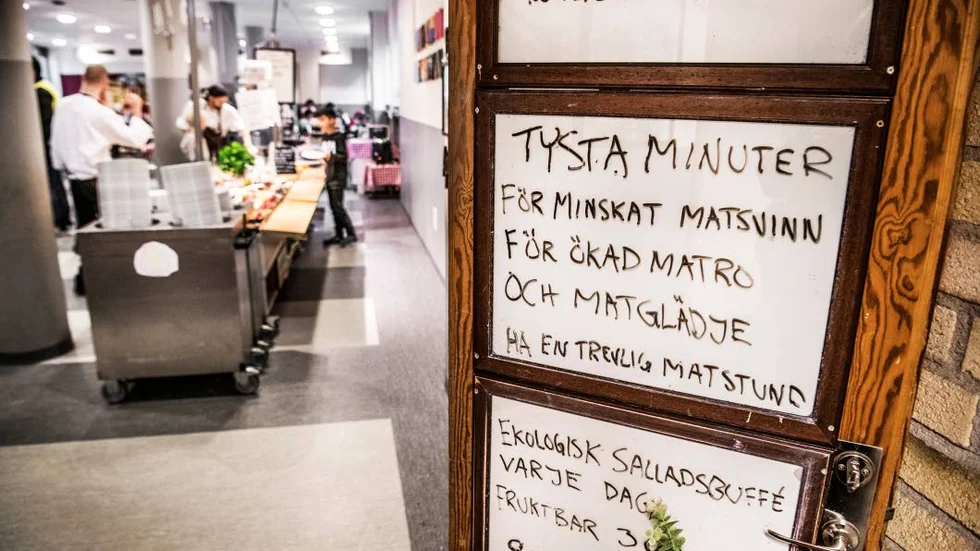 TYSTA MINUTER
FÖR MINSKAT MATSVINN
FÖR ÖKAD MATRO
OCH MATGLÄDJE
HA EN TREVLIG MATSTUND
EKOLOGISK SALLADSBUFFÉ
VARJE DAG
FRUKTBAR